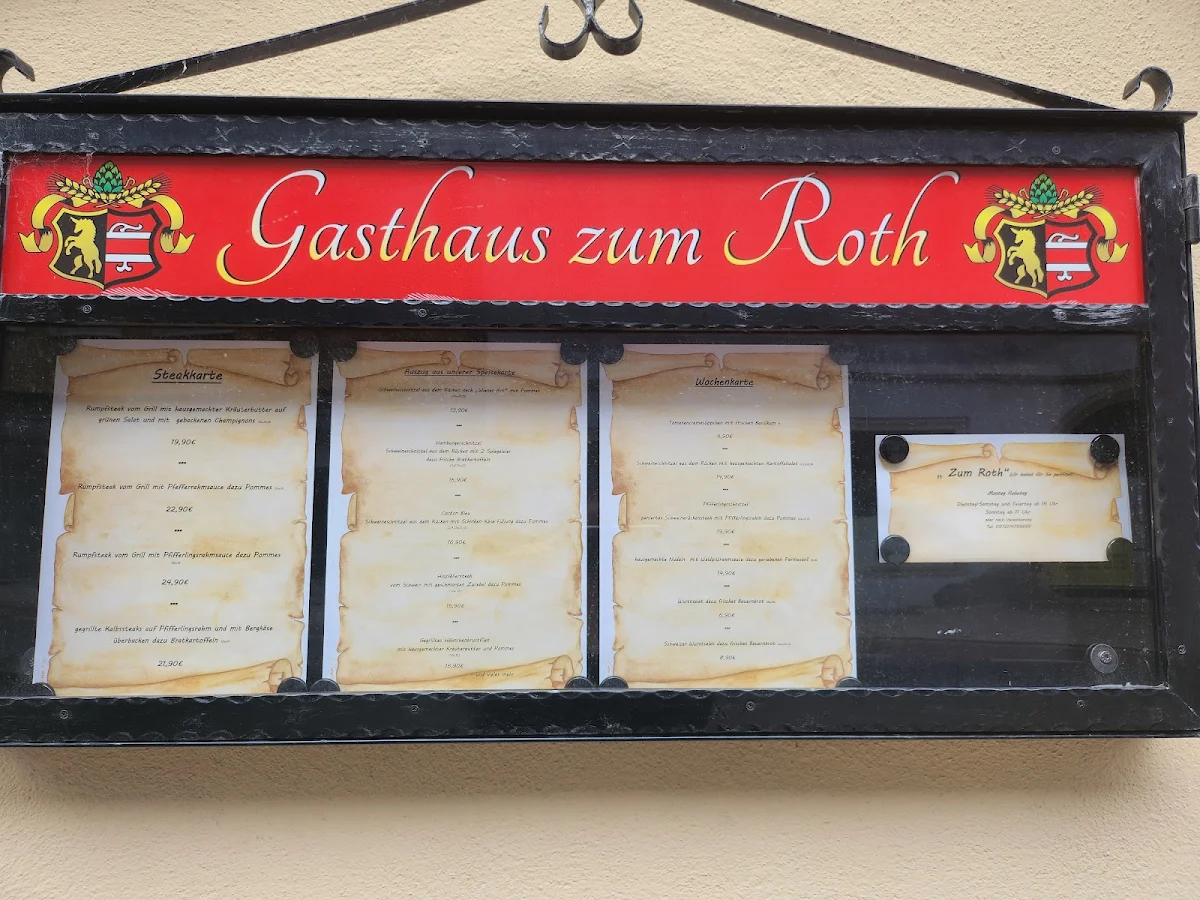 Gasthaus zum Roth
Steakkarte
Rumpfsteak vom Grill mit hausgemachter Kräuterbutter auf
grünen Salat und mit gebackenen Champignons
19,90€
***
Rumpfsteak vom Grill mit Pfefferrahmsauce dazu Pommes
22,90€
***
Rumpfsteak vom Grill mit Pfifferlingsrahmsauce dazu Pommes
24,90€
***
gegrillte Kalbssteaks auf Pfifferlingsrahm und mit Bergkäse
überbacken dazu Bratkartoffeln
21,90€
Auszug aus unserer Speisekarte
Schweineschnitzel aus dem Rücken nach „Wiener Art" mit Pommes
13,90€
***
Hamburgerschnitzel
Schweineschnitzel aus dem Rücken mit 2 Spiegeleier
dazu frische Bratkartoffeln
15,90€
***
Cordon Bleu
Schweineschnitzel aus dem Rücken mit Schinken Käse Füllung dazu Pommes
16,90€
***
vom Schwein mit geschmorten Zwiebel dazu Pommes
15,90€
***
Gegrilltes Hähnchenbrustfilet
mit hausgemachter Kräuterbutter und Pommes
15,90€
und vieles mehr
Wochenkarte
Tomatencremesüppchen mit frischen Basilikum
***
Schweineschnitzel aus dem Rücken mit hausgemachten Kartoffelsalat
14,90€
***
Pfifferlingschnitzel
paniertes Schweinerückensteak mit Pfifferlingsrahm dazu Pommes
***
hausgemachte Nudeln mit Waldpilzrahmsauce dazu geriebenen Parmesan
14,90€
***
Wurstsalat dazu frisches Bauernbrot
6,90€
***
Schweizer Wurstsalat dazu frisches Bauernbrot
8,90€
„ Zum Roth"
Montag Ruhetag
Dienstag-Samstag und Feiertag ab 16 Uhr
Sonntag ab 11 Uhr
oder nach Vereinbarung